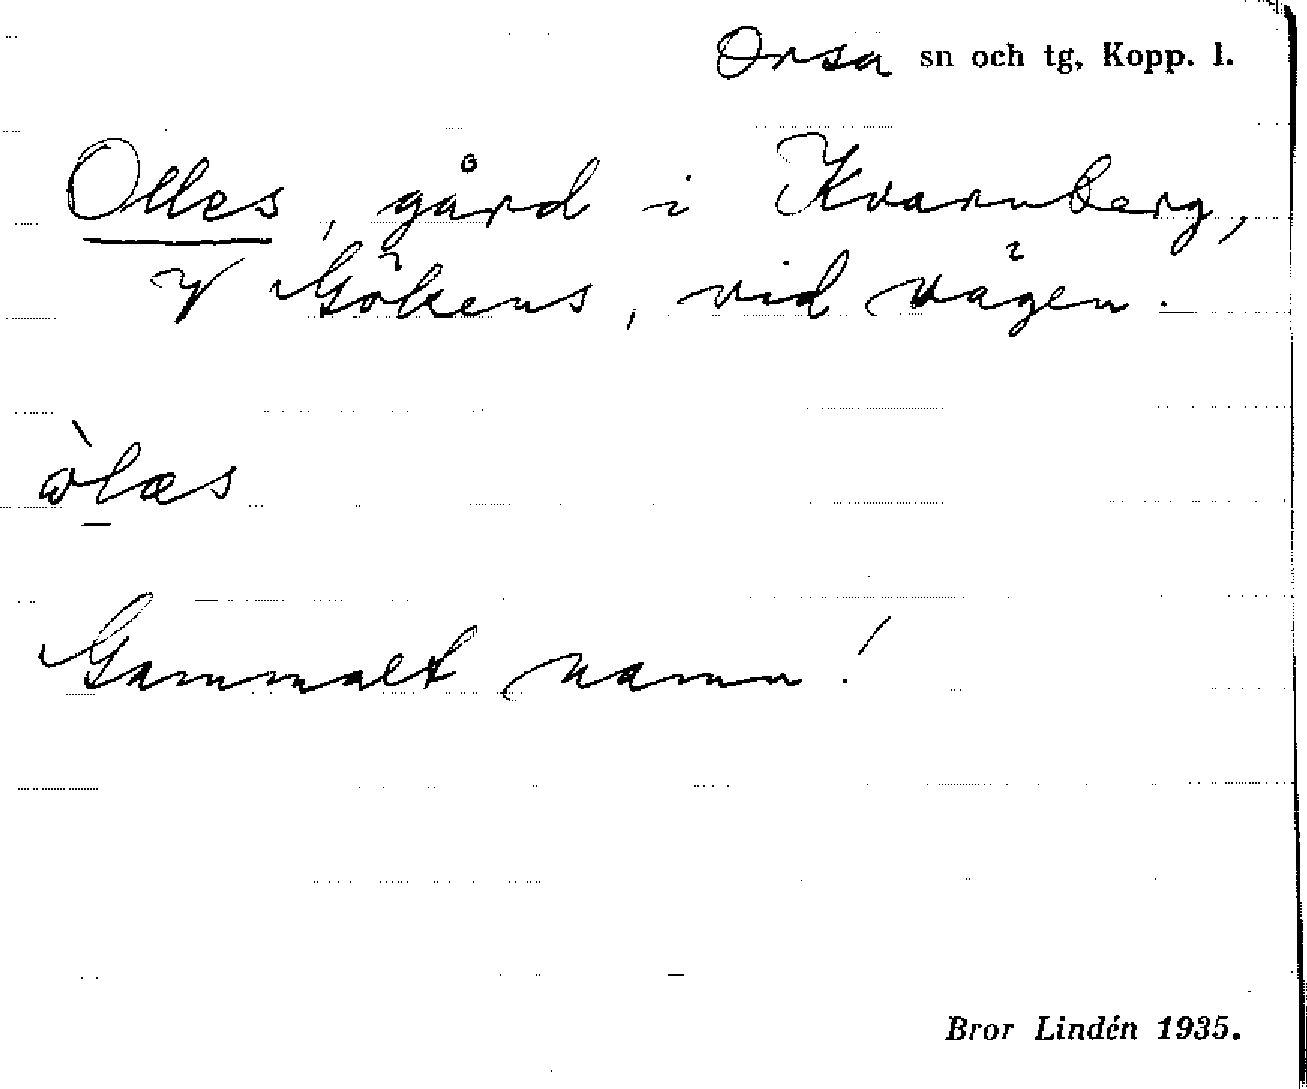 Orsa sn och tg, Kopp. l.
Olles, gård i Kvarnberg,
V Gökens, vid vägen.
òlæs
Gammalt namn!
Bror Lindén 1935.